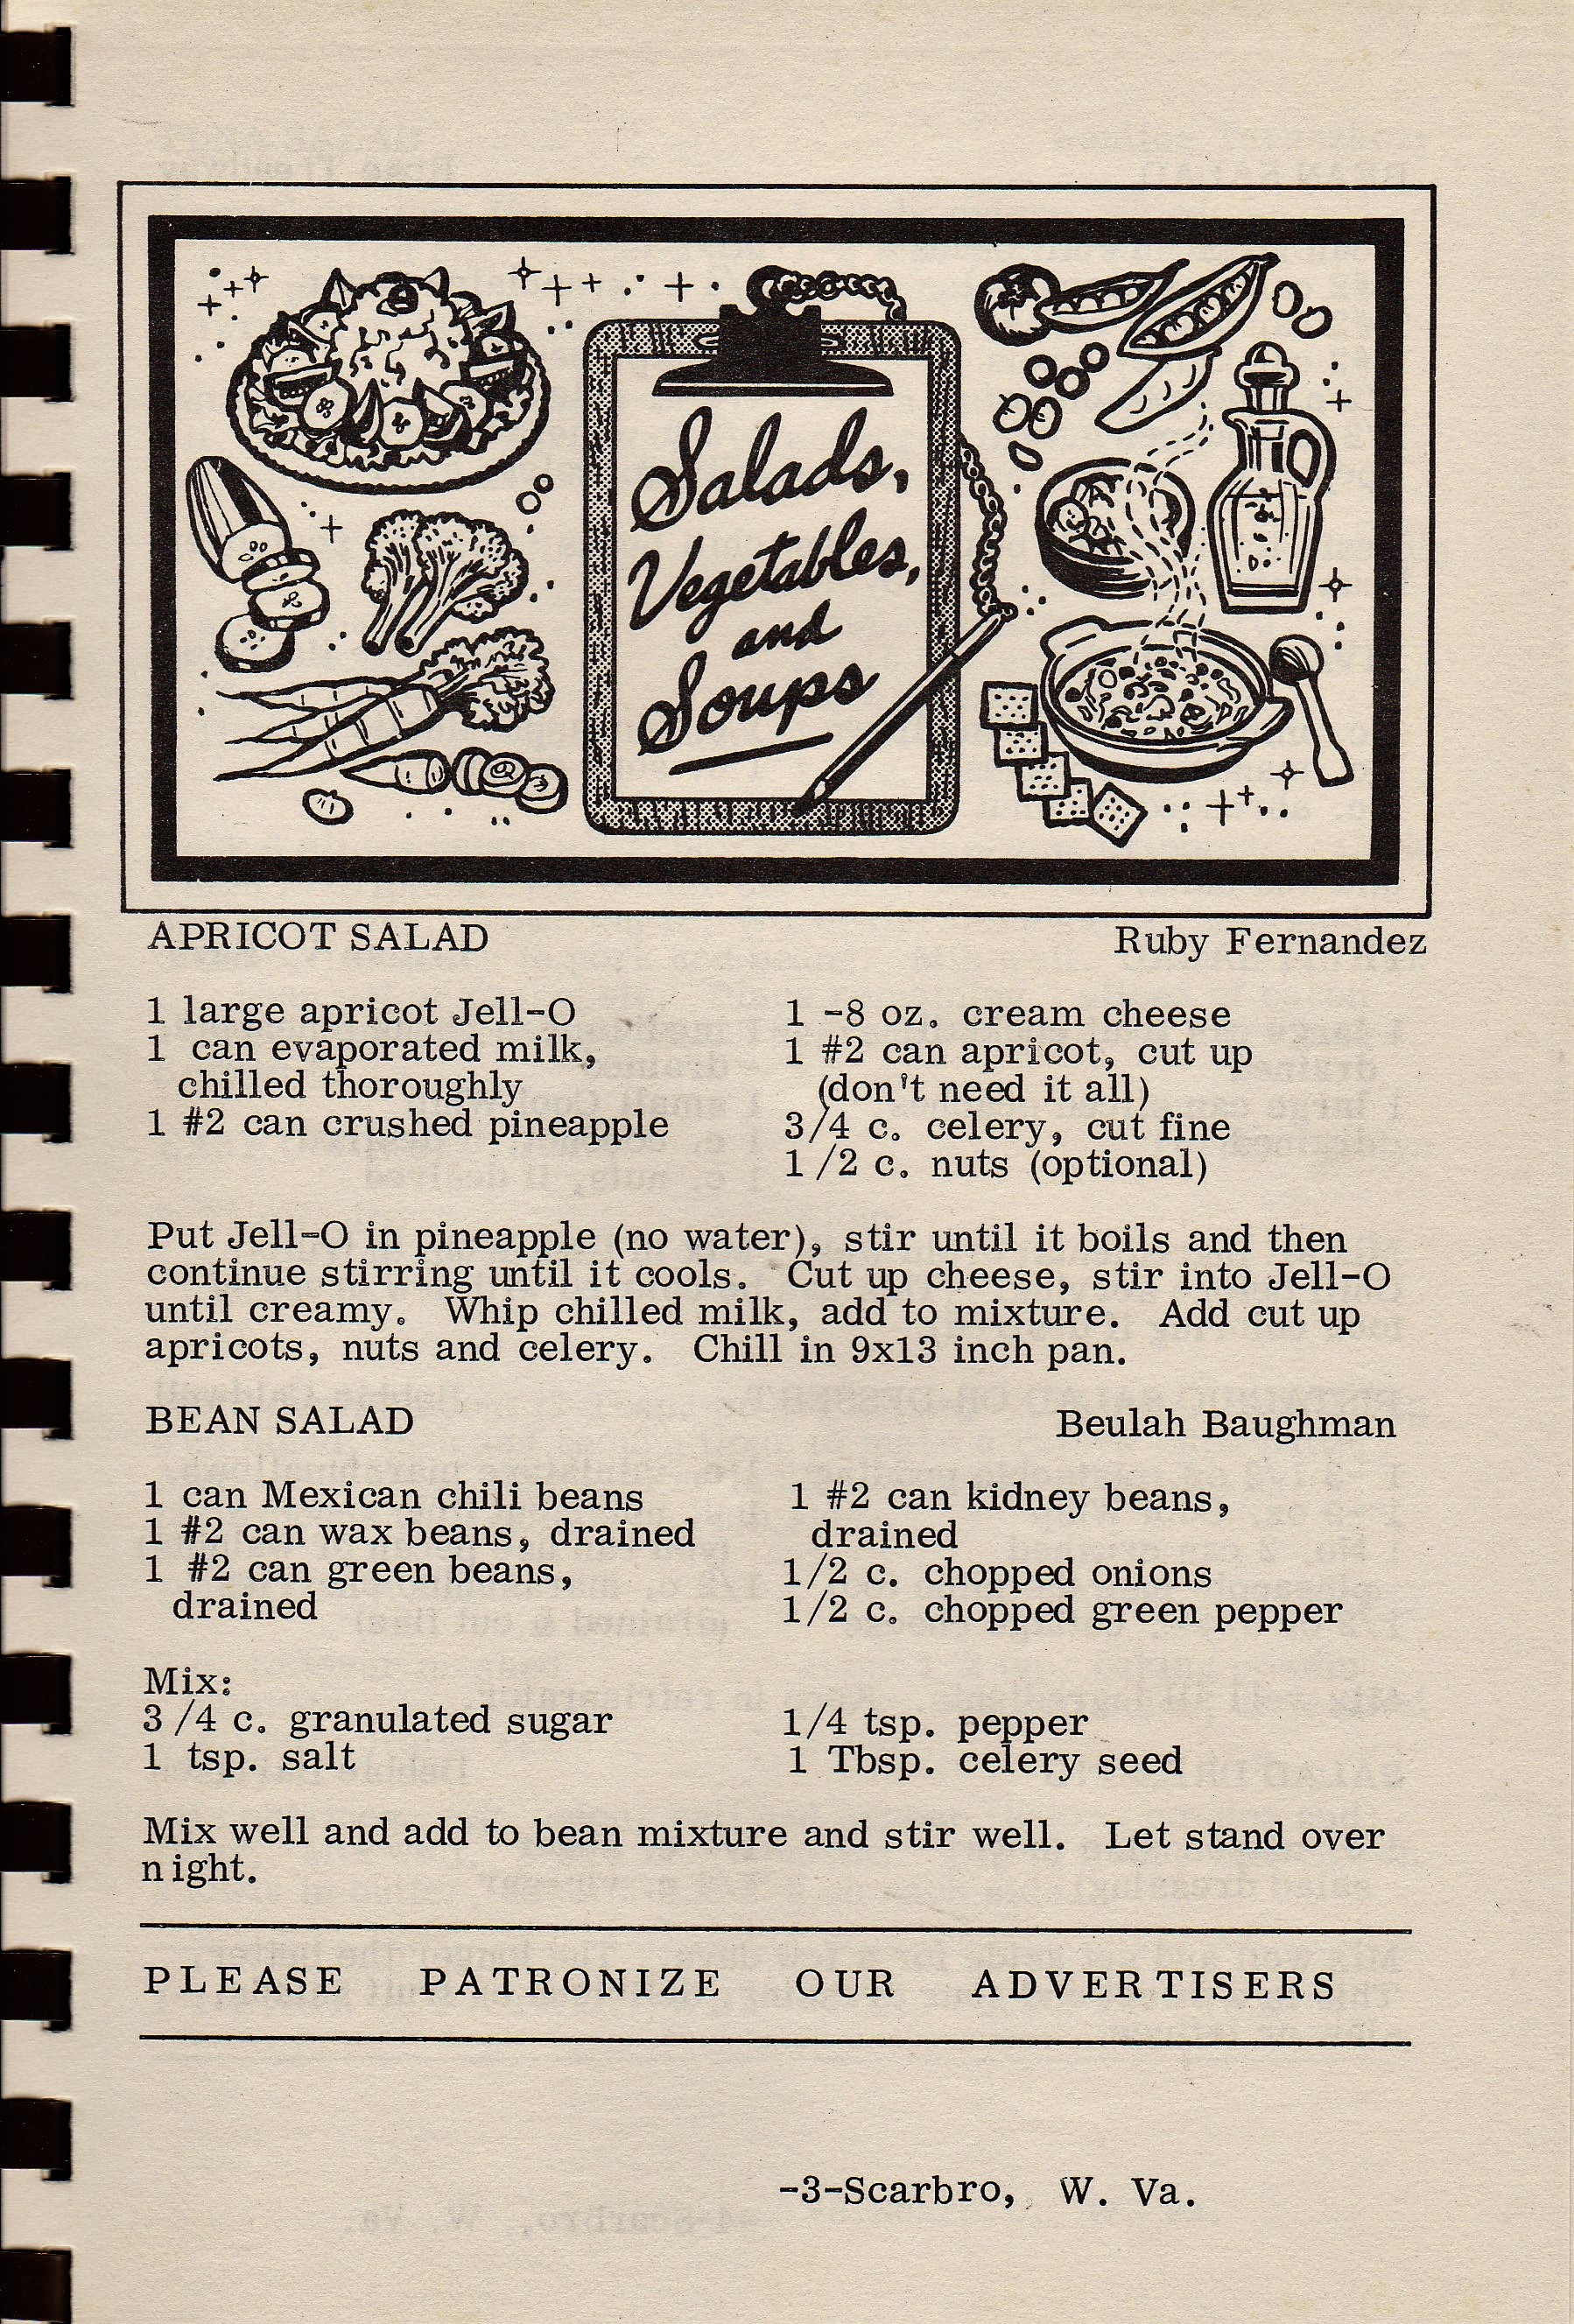 Salads,
Vegetables,
and
Soups
APRICOT SALAD Ruby Fernandez
1 large apricot Jell-O
1 can evaporated milk,
chilled thoroughly
1 #2 can crushed pineapple
1 -8 oz. cream cheese
1 #2 can apricot, cut up
(don't need it all)
3/4 c. celery, cut fine
1/2 c. nuts (optional)
Put Jell-O in pineapple (no water), stir until it boils and then
continue stirring until it cools. Cut up cheese, stir into Jell-O
until creamy. Whip chilled milk, add to mixture. Add cut up
apricots, nuts and celery. Chill in 9x13 inch pan.
BEAN SALAD Beulah Baughman
1 can Mexican chili beans
1 #2 can wax beans, drained
1 #2 can green beans,
drained
1 #2 can kidney beans,
drained
1/2 c. chopped onions
1/2 c. chopped green pepper
Mix:
3/4 c. granulated sugar
1 tsp. salt
1/4 tsp. pepper
1 Tbsp. celery seed
Mix well and add to bean mixture and stir well. Let stand over
night.
PLEASE PATRONIZE OUR ADVERTISERS
-3-Scarbro, W. Va.